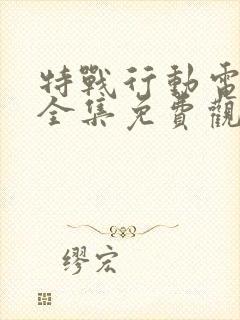 特戰行動電
全集免費觀
繆宏